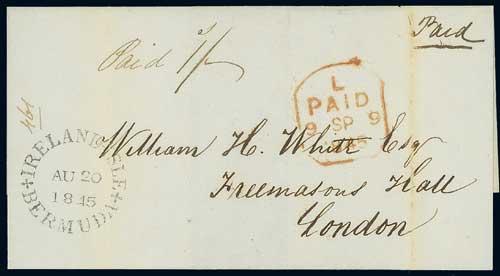 Paid
Paid 1/-
L
PAID
9 SP 9
1845
461
IRELAND ISLE
AU 20
1845
BERMUDA
William H. White Esqr
Freemasons Hall
London